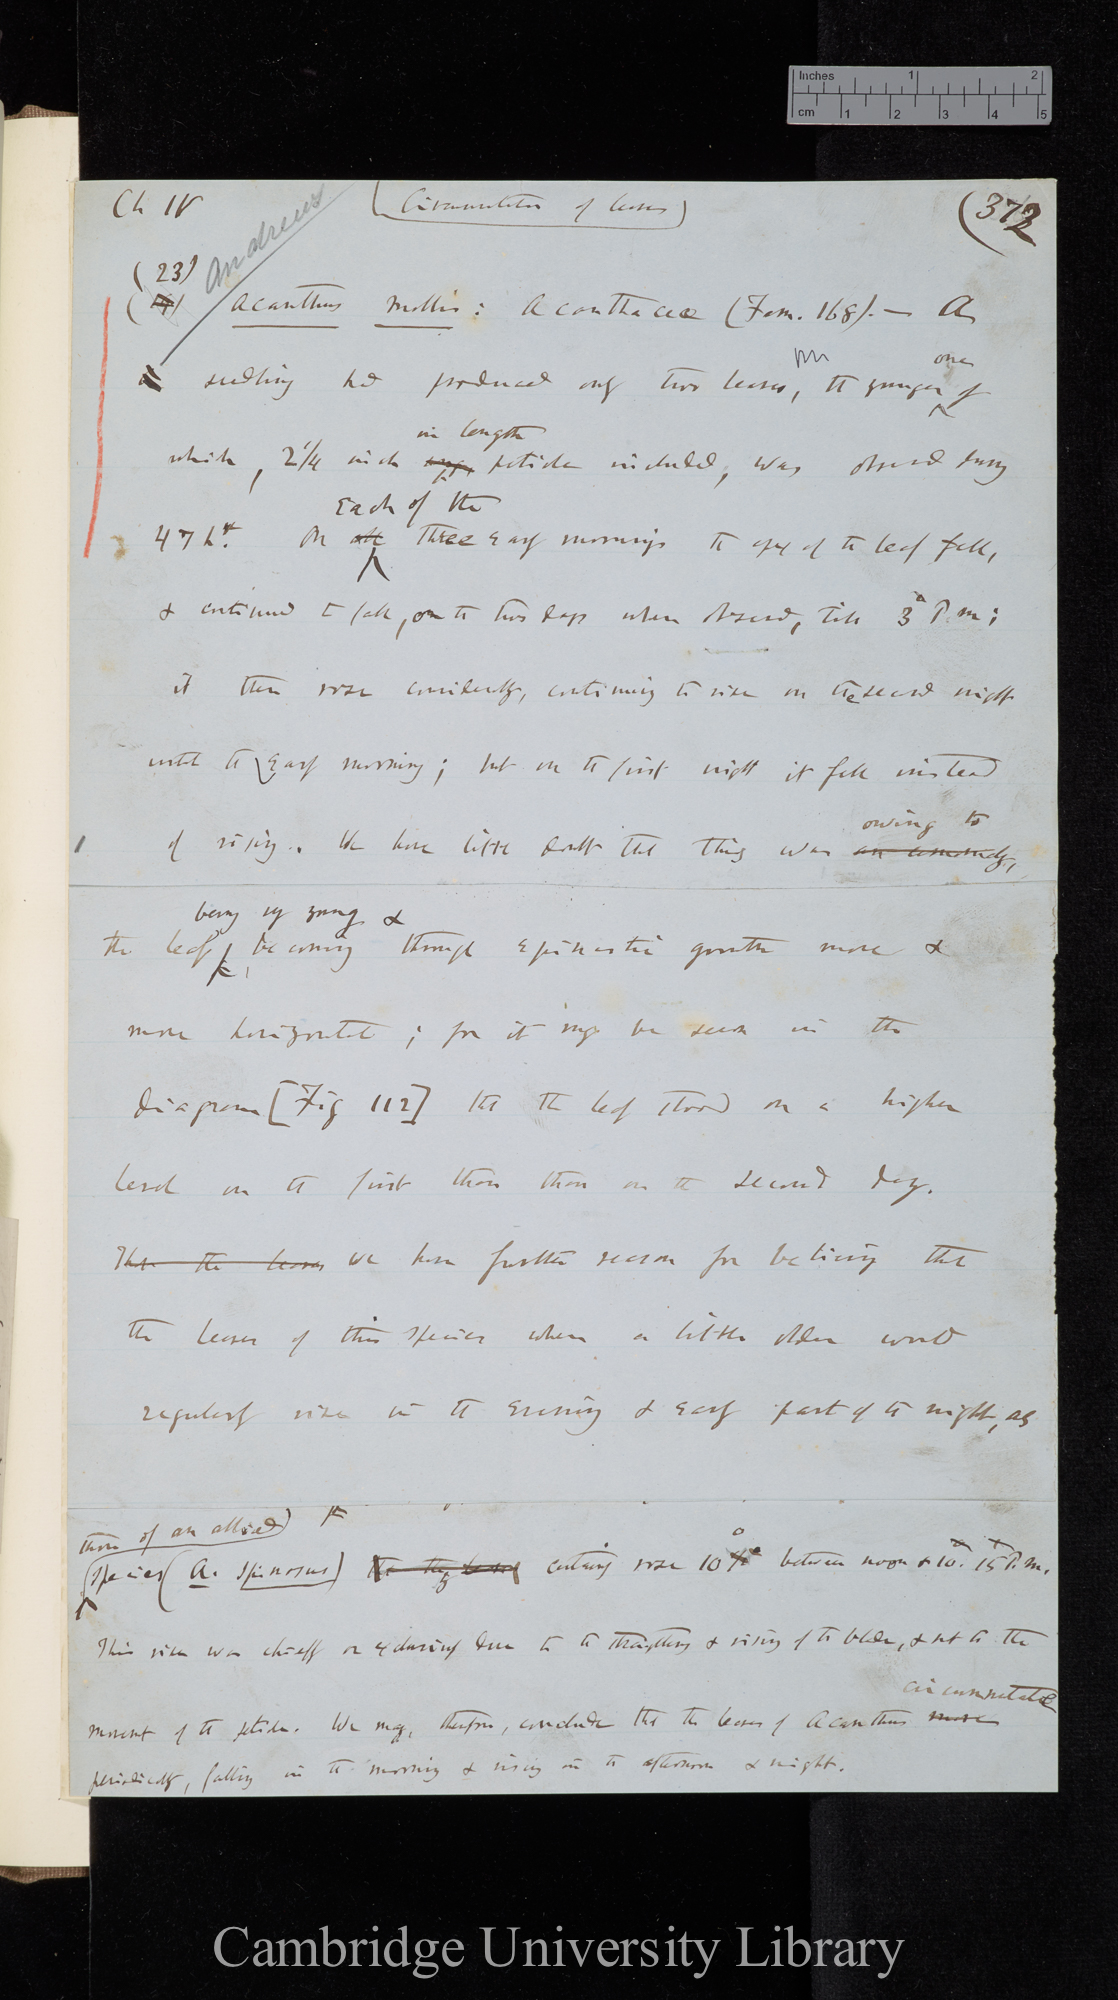 Inches 1 2
cm 1 2 3 4 5
Ch IV (Circumnutation of leaves) (372
Andrews
(23)
Acanthus mollis: Acanthaceæ (Fam. 168).— A
one
seedling had produced only two leaves, the younger of
in length
which, 2 1/4 inch petiole included, was observed during
Each of the
47 h. On all three early mornings the apex of the leaf fell,
& continued to fall, on the two days when observed, till 3 P.m;
it then rose considerably, continuing to rise on the second night
until the early morning; but on the first night it fell instead
owing to
of rising. We have little doubt that this was
being very young &
the leaf becoming through epinastic growth more &
more horizontal; for it may be seen in the
diagram [Fig 112] that the leaf stood on a higher
level on the first than than on the second day.
Then the leaves We have further reason for believing that
the leaves of this species when a little older would
regularly rise in the evening & early part of the night, as
those of an allied
species (A. spinosus) certainly rose 10° between noon & 10. 15 P.m.
This rise was chiefly or exclusively due to the straightening & rising of the blade, & not to the
circumnutate
movement of the petiole. We may, therefore, conclude that the leaves of Acanthus move
periodically, falling in the morning & rising in the afternoon & night.
Cambridge University Library